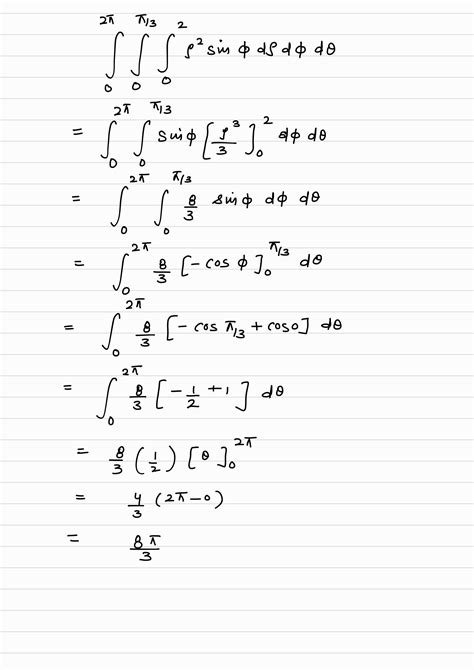 ∫₀^{2π} ∫₀^{π/3} ∫₀^{2} ρ² sin ϕ dρ dϕ dθ
= ∫₀^{2π} ∫₀^{π/3} sin ϕ [ρ³/3]₀² dϕ dθ
= ∫₀^{2π} ∫₀^{π/3} 8/3 sin ϕ dϕ dθ
= ∫₀^{2π} 8/3 [-cos ϕ]₀^{π/3} dθ
= ∫₀^{2π} 8/3 [-cos π/3 + cos 0] dθ
= ∫₀^{2π} 8/3 [-1/2 + 1] dθ
= 8/3 (1/2) [θ]₀^{2π}
= 4/3 (2π-0)
= 8π/3